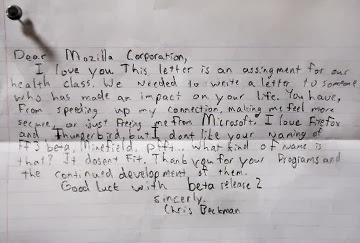 Dear Mozilla Corporation,
I love you This letter is an assingment for our
health class. We needed to write a letter to someone
who has made an impact on your life. You have,
From speeding up my connection, making me feel more
secure, or just freeing me from Microsoft. I love Firefox
and Thungerbird, but I dont like your naming of
FF3 beta, Minefield, pfft.. what kind of name is
that? It dosent Fit. Thank you for your Programs and
the continued development of them.
Good luck with beta release 2
sincerly,
Chris Beckman